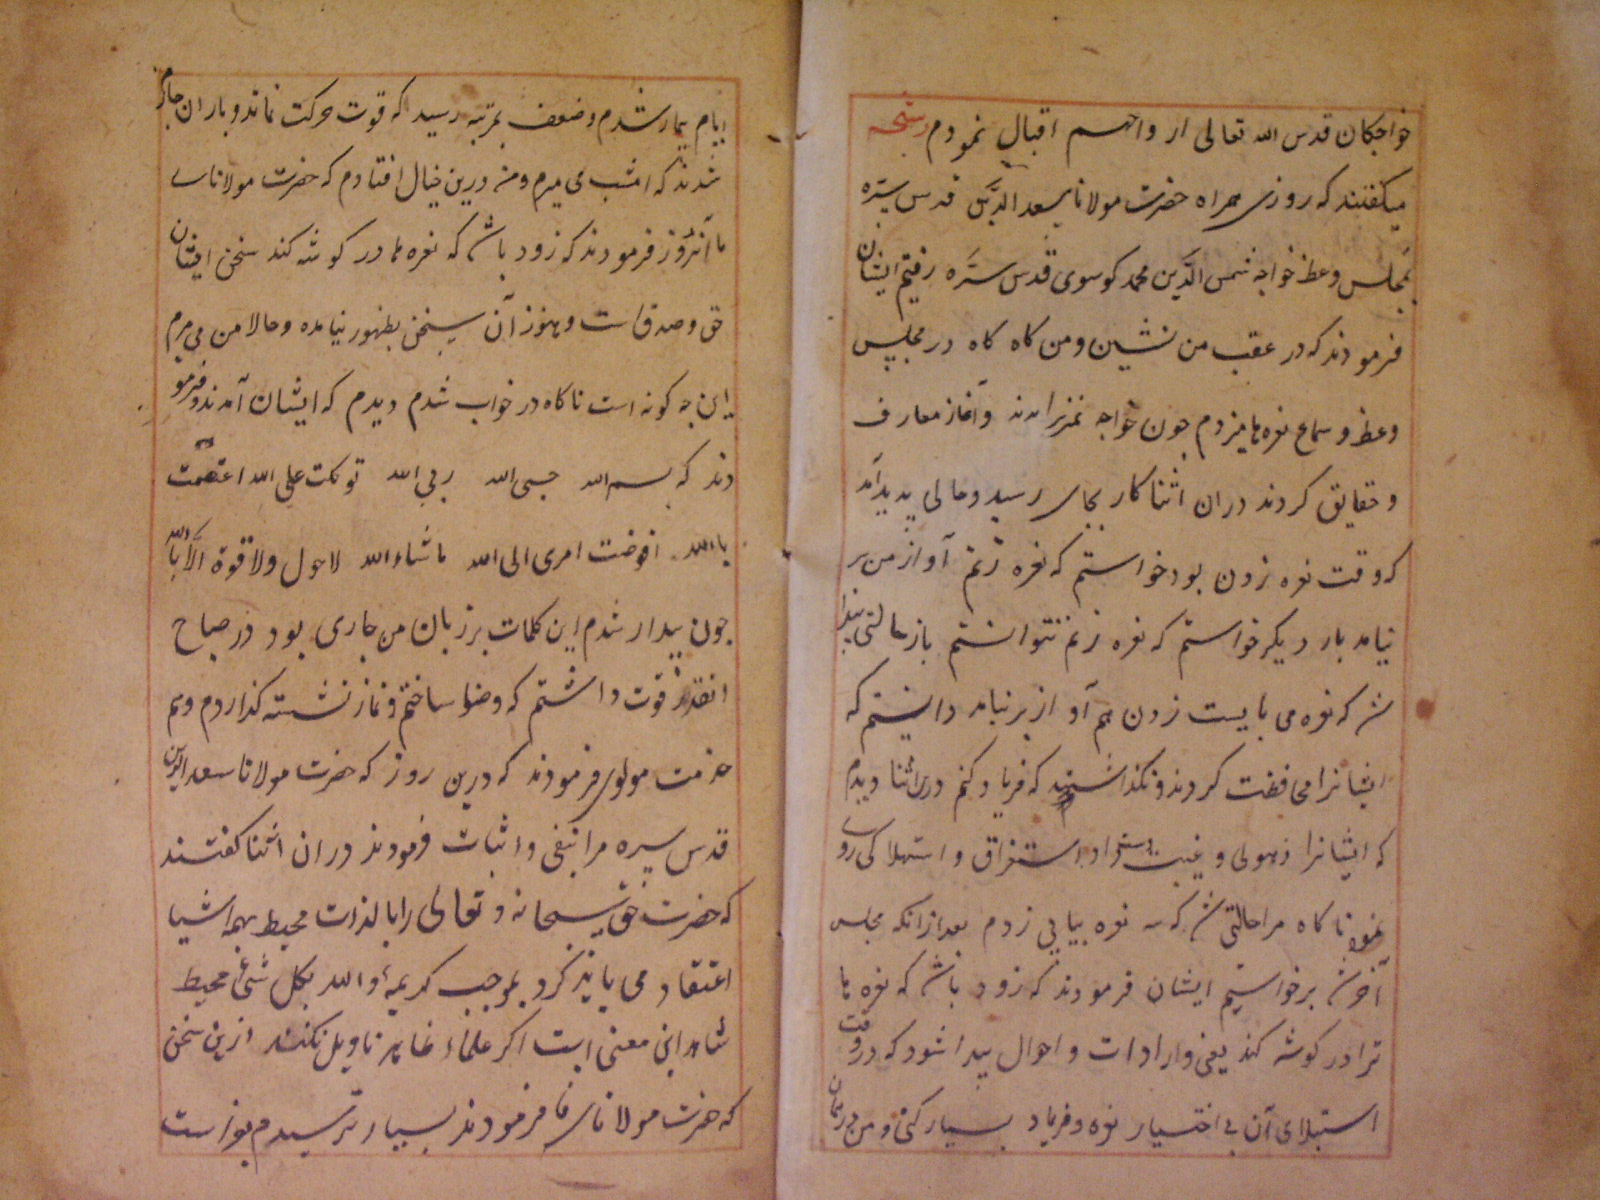 خواجکان قدس الله تعالی ارواحهم اقبال نمودم رشحه
میکفتند که روزی همراه حضرت مولانا سعد الدین قدس سره
بمجلس وعظ خواجه شمس الدین محمد کوسوی قدس سره رفتیم ایشان
فرمودند که در عقب من نشین و من کاه کاه در مجلس
وعظ و سماع نعره ها میزدم چون خواجه بمنبر برآمدند و آغاز معارف
و حقایق کردند دران اثنا کار بجای رسید و حالی پدید آمد
که وقت نعره زدن بود خواستم که نعره زنم آواز من بر
نیامد بار دیکر خواستم که نعره زنم نتوانستم باز حالتی پیدا
شد که نعره می بایست زدن هم آواز بر نیامد دانستم که
ایشان مرا محافظت کردند و نکذاشتند که فریاد کنم درین اثنا دیدم
که ایشانرا ذهولی و غیبت و استغراق و استهلاکی روی
نمود ناکاه مرا حالتی شد که سه نعره پیاپی زدم بعد ازانکه مجلس
آخر شد برخواستیم ایشان فرمودند که زود باشد که نعره ها
ترا در کوشه کند یعنی واردات و احوال پیدا شود که در وقت
استیلای آن بی اختیار نعره و فریاد بسیار کنی و من در همان
ایام بیمار شدم و ضعف بمرتبه رسید که قوت حرکت نماند و یاران جازم
شدند که امشب می میرم و من درین خیال افتادم که حضرت مولانای
ما آنروز فرمودند که زود باشد که نعره ها در کوشه کند سخن ایشان
حق و صدق است و هنوز آن سخن بظهور نیامده و حالا من می میرم
این چه کونه است ناکاه در خواب شدم دیدم که ایشان آمدند و فرمو
دند که بسم الله حسبی الله ربی الله توکلت علی الله اعتصمت
بالله فوضت امری الی الله ماشاء الله لا حول ولا قوة الا بالله
چون بیدار شدم این کلمات بر زبان من جاری بود در صباح
آنقدر قوت داشتم که وضو ساختم و نماز نشسته کذاردم و هم
خدمت مولوی فرمودند که درین روز که حضرت مولانا سعد الدین
قدس سره مرا بنفی و اثبات فرمودند دران اثنا کفتند
که حضرت حق سبحانه و تعالی را بالذات محیط بهمه اشیا
اعتقاد می باید کرد بموجب کریمه والله بکل شیئ محیط
شاهد این معنی است اکر علماء ظاهر تاویل نکنند ازین سخن
که حضرت مولانای ما فرمودند بسیار ترسیدم بواست